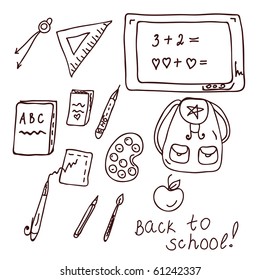 3 + 2 =
♡♡ + ♡ =
ABC
Back to
school!
shutterstock.com · 61242337